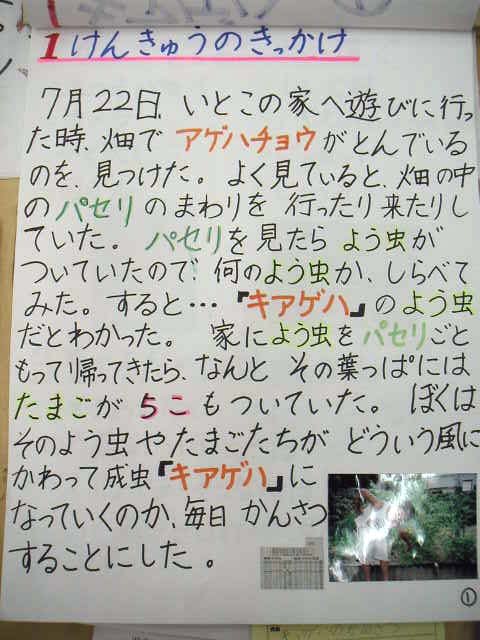 1 けんきゅうのきっかけ
7月22日、いとこの家へ遊びに行っ
た時、畑でアゲハチョウがとんでいる
のを、見つけた。よく見ていると、畑の中
のパセリのまわりを行ったり来たりし
ていた。パセリを見たらよう虫が
ついていたので、何のよう虫か、しらべて
みた。すると…『キアゲハ』のよう虫
だとわかった。家によう虫をパセリごと
もって帰ってきたら、なんとその葉っぱには
たまごが5こもついていた。ぼくは
そのよう虫やたまごたちがどういう風に
かわって成虫『キアゲハ』に
なっていくのか、毎日かんさつ
することにした。
①